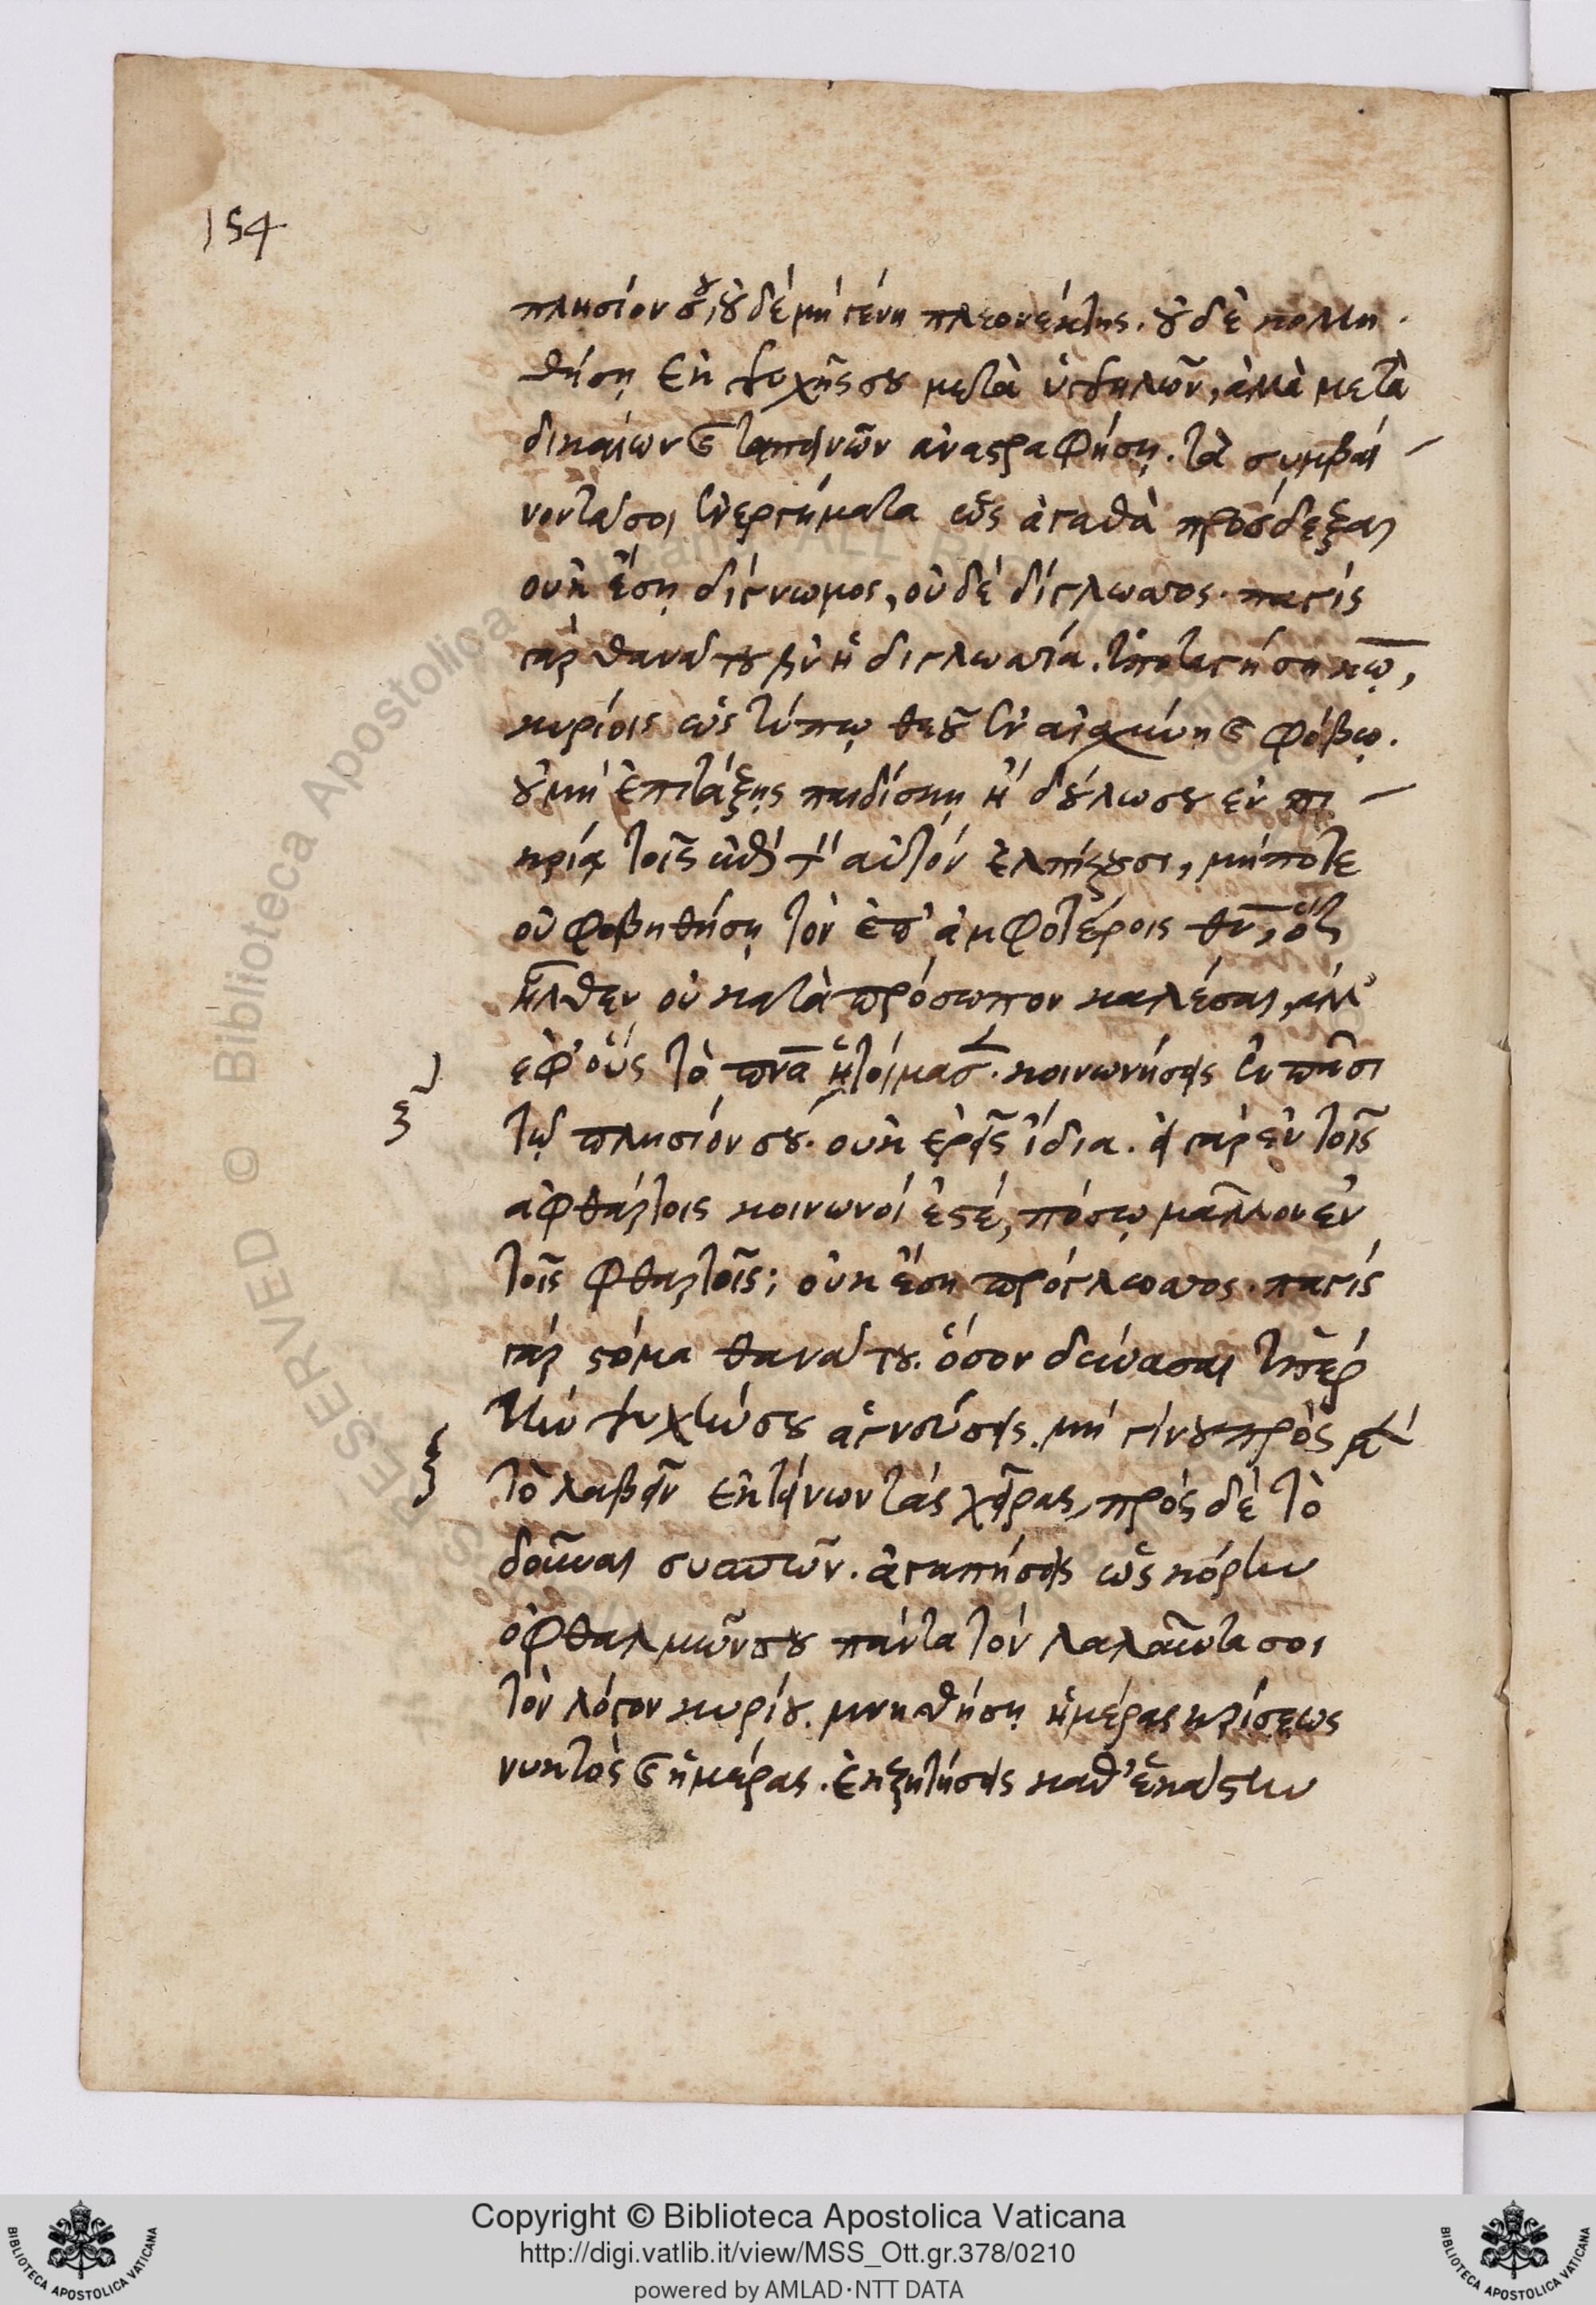 154
πλησίον σου, οὐδὲ μὴ γένη πλεονέκτης. οὐδὲ κολλη
θήση ἐκ ψυχῆς σου μετὰ ὑψηλῶν, ἀλλὰ μετὰ
δικαίων καὶ ταπεινῶν ἀναστραφήσῃ. τὰ συμβαί
νοντά σοι ἐνεργήματα ὡς ἀγαθὰ πρόσδεξαι
οὐκ ἔσῃ δίγνωμος, οὐδὲ δίγλωσσος. παγὶς
γὰρ θανάτου ἐστὶν ἡ διγλωσσία. ὑποταγήσῃ κω,
κυρίοις ὡς τύπῳ θεοῦ ἐν αἰσχύνῃ καὶ φόβῳ.
οὐ μὴ ἐπιτάξῃς παιδίσκῃ ἢ δούλῳ σου ἐν πι
κρίᾳ τοῖς ἐπὶ τὸν αὐτὸν ἐλπίζουσι, μήποτε
οὐ φοβηθήσῃ τὸν ἐπ' ἀμφοτέροις θν, ὅτι
ἦλθεν οὐ κατὰ πρόσωπον καλέσαι, ἀλλ'
ἐφ' οὓς τὸ πνα ἡτοίμασεν. κοινωνήσεις ἐν πᾶσι
τῷ πλησίον σου. οὐκ ἐρεῖς ἴδια. εἰ γὰρ ἐν τοῖς
ἀφθάρτοις κοινωνοί ἐστέ, πόσῳ μᾶλλον ἐν
τοῖς φθαρτοῖς; οὐκ ἔσῃ πρόγλωσσος. παγὶς
γὰρ στόμα θανάτου. ὅσον δύνασαι ὑπὲρ
τὴν ψυχήν σου ἁγνεύσεις. μὴ γίνου πρὸς μὲν
τὸ λαβεῖν ἐκτείνων τὰς χεῖρας, πρὸς δὲ τὸ
δοῦναι συσπῶν. ἀγαπήσεις ὡς κόρην
ὀφθαλμῶν σου πάντα τὸν λαλοῦντα σοι
τὸν λόγον κυρίου. μνησθήσῃ ἡμέρας κρίσεως
νυκτὸς καὶ ἡμέρας. ἐκζητήσεις καθ' ἑκάστην
Copyright © Biblioteca Apostolica Vaticana
http://digi.vatlib.it/view/MSS_Ott.gr.378/0210
powered by AMLAD·NTT DATA